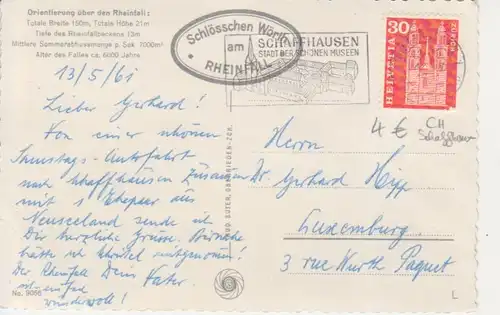 Orientierung über den Rheinfall:
Totale Breite 150m, Totale Höhe 21m
Tiefe des Rheinfallbeckens 13m
Mittlere Sommerabflussmenge p. Sek. 1000m³
Alter des Falles ca. 6000 Jahre
Schlösschen Wörth
am
RHEINFALL
SCHAFFHAUSEN
STADT DER SCHÖNEN MUSEEN
HELVETIA
30
13/5/61
Lieber Gerhard!
Von einer schönen
Samstags-Autofahrt
nach Schaffhausen zusammen
mit 1 Ehepaar aus
Neuseeland sende ich
Dir herzliche Grüsse.
hätte ich mitgenommen!
Der Rheinfall Dein Vater.
ist einfach
wundervoll!
4 € CH
Schaffhausen
Herrn
Dr Gerhard Hipp
Luxemburg.
3 rue Wurth Paquet
No. 9066
L